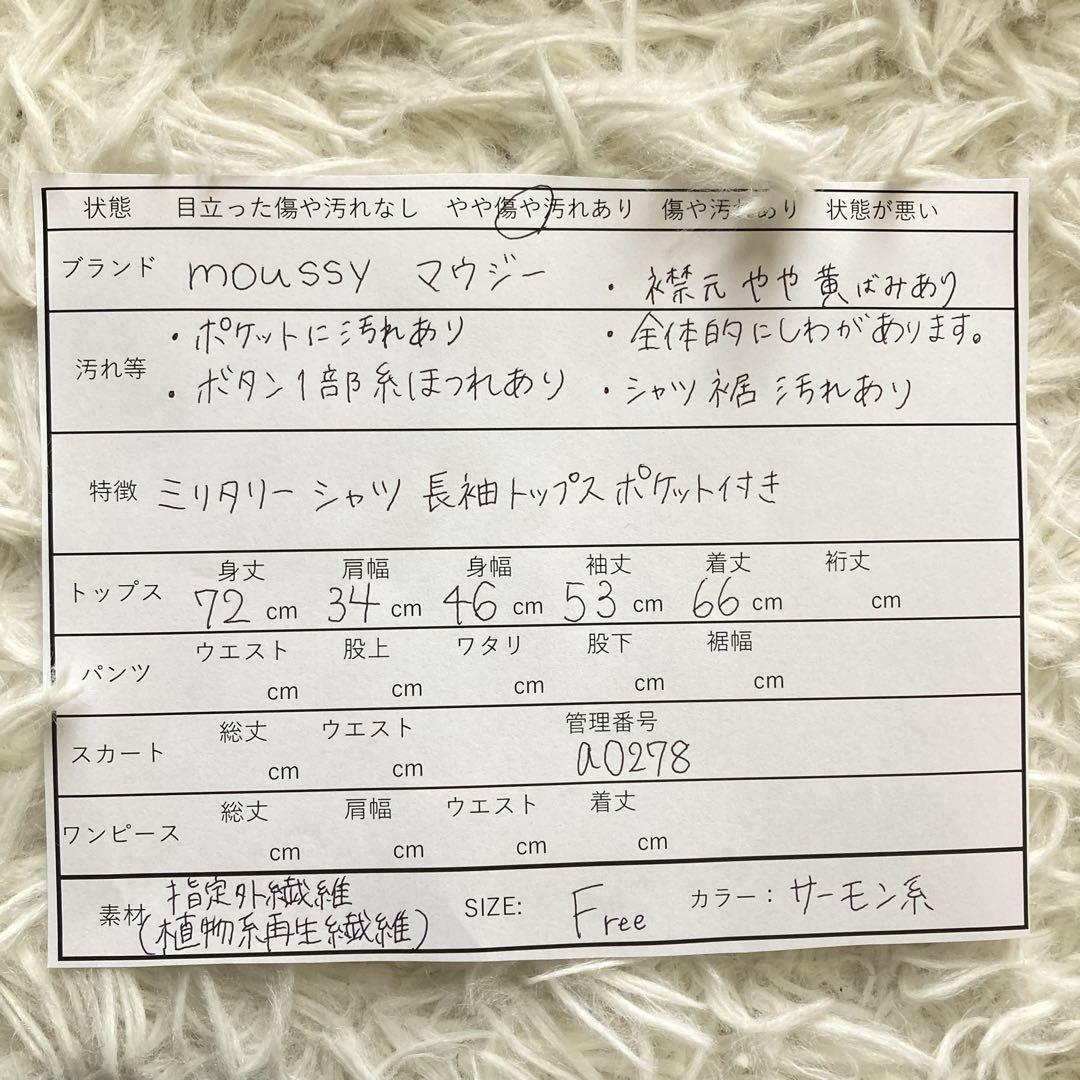 状態 目立った傷や汚れなし やや傷や汚れあり 傷や汚れあり 状態が悪い
ブランド moussy マウジー
・襟元 やや 黄ばみあり
汚れ等
・ポケットに汚れあり
・全体的にしわがあります。
・ボタン1部糸ほつれあり
・シャツ 裾 汚れあり
特徴 ミリタリー シャツ 長袖トップス ポケット付き
トップス 身丈 72 cm 肩幅 34 cm 身幅 46 cm 袖丈 53 cm 着丈 66 cm 裄丈 cm
パンツ ウエスト cm 股上 cm ワタリ cm 股下 cm 裾幅 cm
スカート 総丈 cm ウエスト cm 管理番号 a0278
ワンピース 総丈 cm 肩幅 cm ウエスト cm 着丈 cm
素材 指定外繊維
(植物系再生繊維)
SIZE: Free カラー：サーモン系